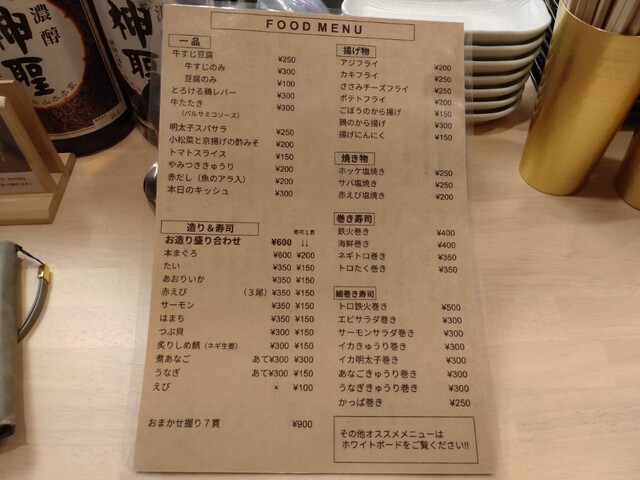 濃醇
神聖
神聖
FOOD MENU
一品
牛すじ豆腐 ¥250
牛すじのみ ¥300
豆腐のみ ¥100
とろける鶏レバー ¥300
牛たたき ¥300
(バルサミコソース)
明太子スパサラ ¥250
小松菜と京揚げの酢みそ ¥200
トマトスライス ¥150
やみつききゅうり ¥200
赤だし(魚のアラ入) ¥200
本日のキッシュ ¥300
造り&寿司 寿司1貫
お造り盛り合わせ ¥600 ↓↓
本まぐろ ¥600 ¥200
たい ¥350 ¥150
あおりいか ¥350 ¥150
赤えび (3尾)¥350 ¥150
サーモン ¥350 ¥150
はまち ¥350 ¥150
つぶ貝 ¥300 ¥150
炙りしめ鯖(ネギ生姜) ¥300 ¥150
煮あなご あて¥300 ¥300
うなぎ あて¥300 ¥150
えび × ¥100
おまかせ握り7貫 ¥900
揚げ物
アジフライ ¥200
カキフライ ¥200
ささみチーズフライ ¥200
ポテトフライ ¥200
ごぼうのから揚げ ¥150
鶏のから揚げ ¥300
揚げにんにく ¥150
焼き物
ホッケ塩焼き ¥250
サバ塩焼き ¥250
赤えび塩焼き ¥200
巻き寿司
鉄火巻き ¥400
海鮮巻き ¥400
ネギトロ巻き ¥350
トロたく巻き ¥350
細巻き寿司
トロ鉄火巻き ¥500
エビサラダ巻き ¥300
サーモンサラダ巻き ¥300
イカきゅうり巻き ¥300
イカ明太子巻き ¥300
あなごきゅうり巻き ¥300
うなぎきゅうり巻き ¥300
かっぱ巻き ¥250
その他オススメメニューは
ホワイトボードをご覧ください!!